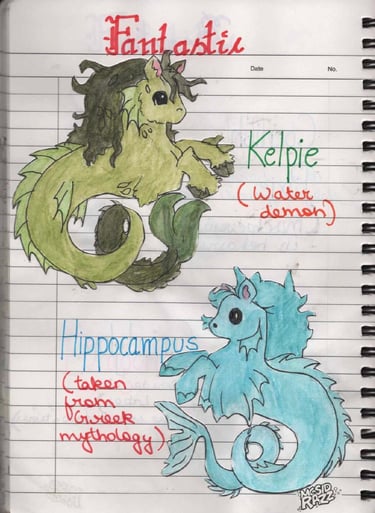 Fantastic
Date
No.
Kelpie
(Water
demon)
Hippocampus
(taken
from
Greek
mythology)